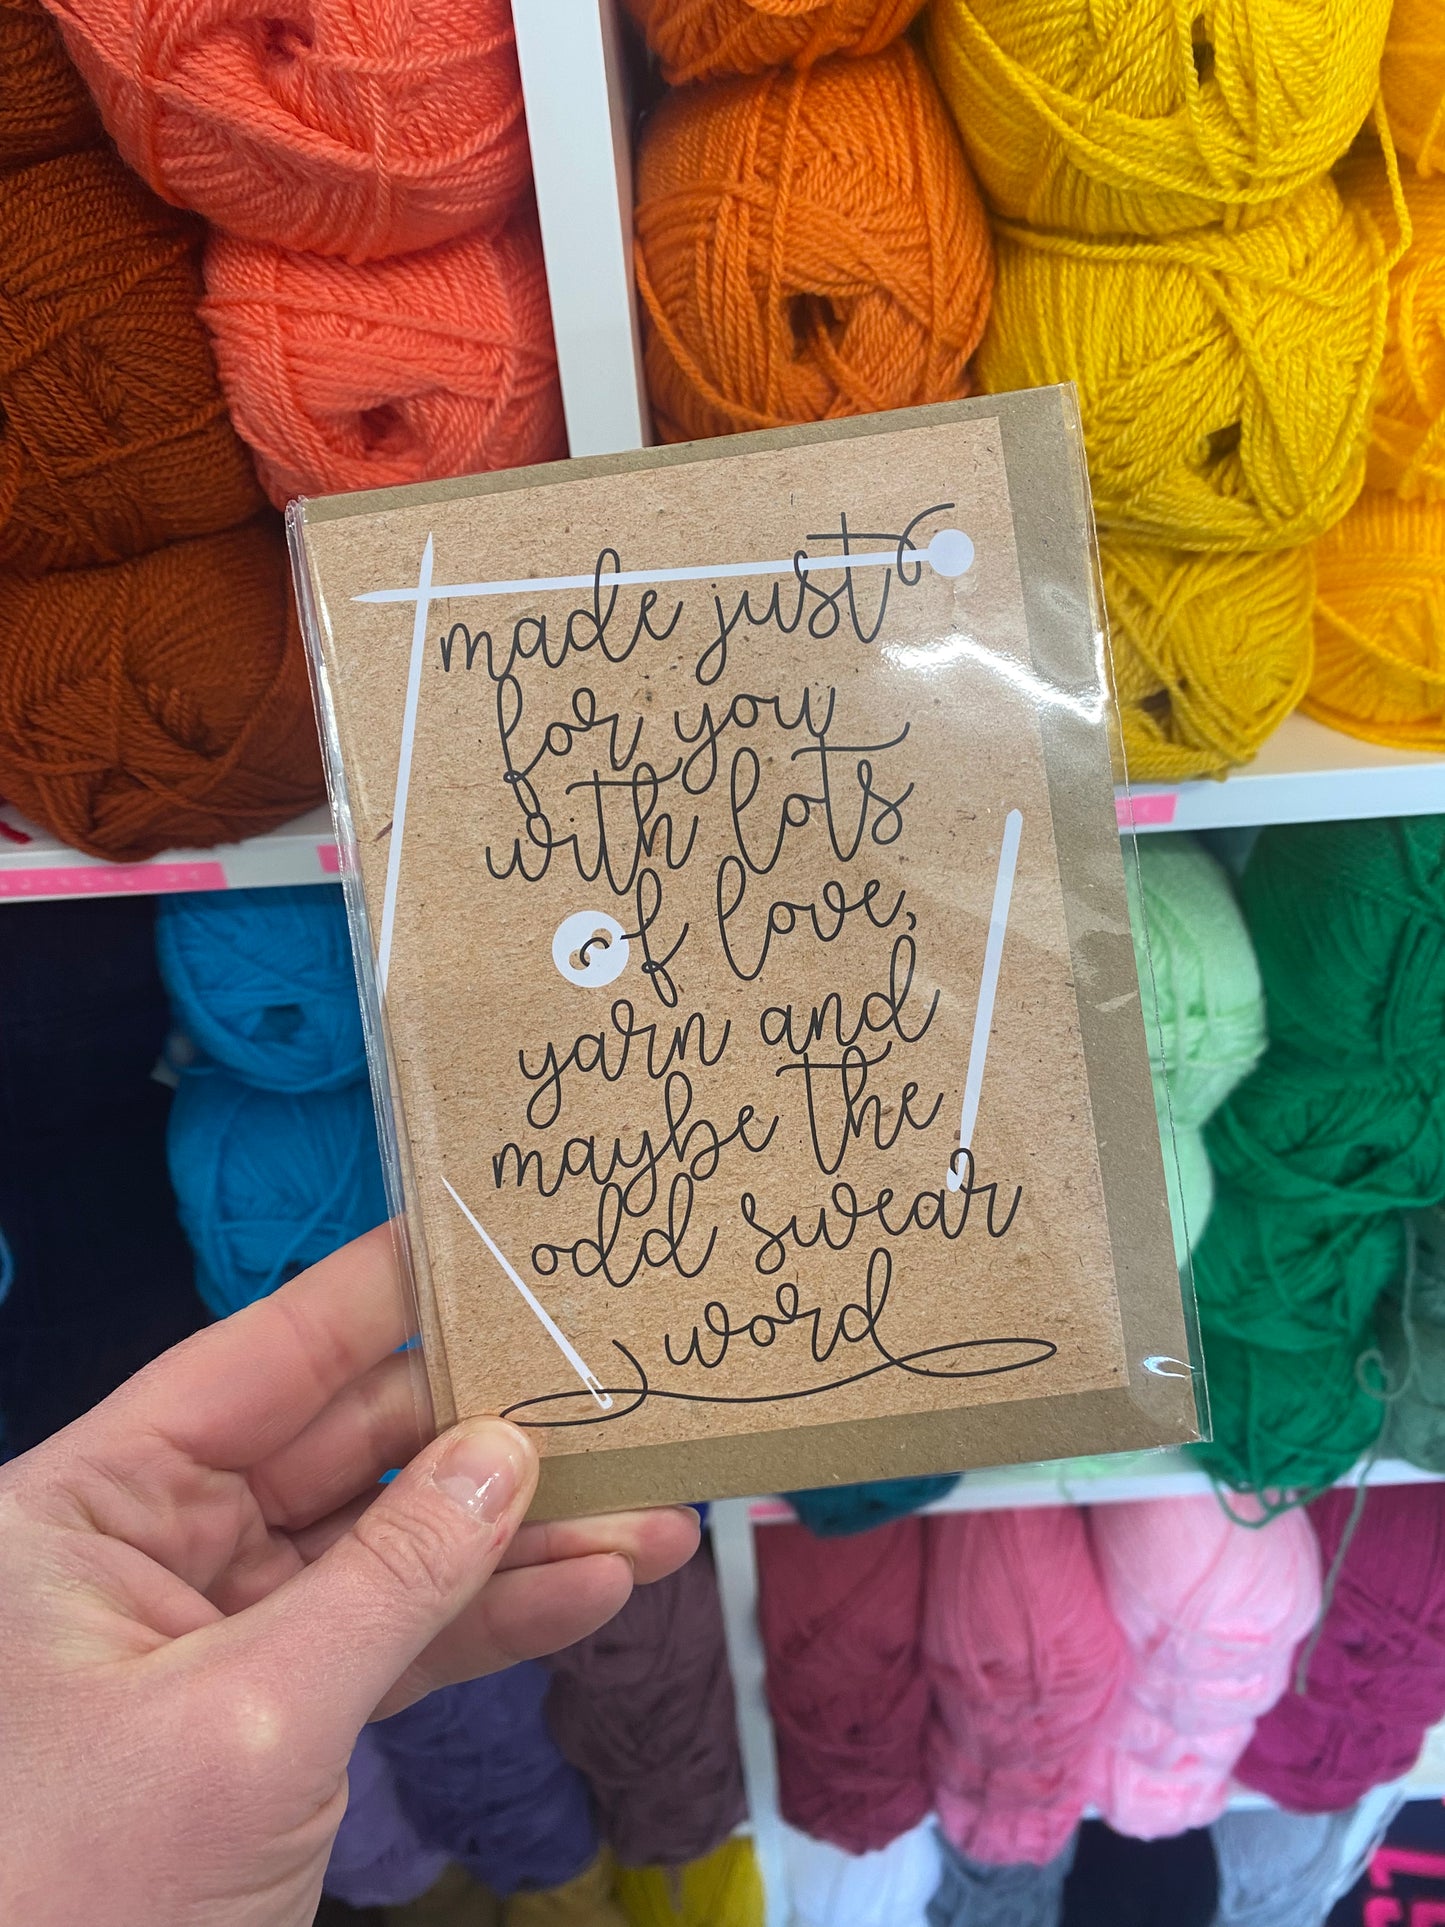 made just
for you
with lots
of love,
yarn and
maybe the
odd swear
word